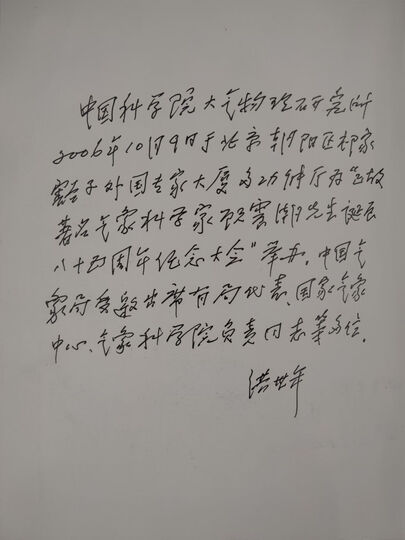 中国科学院大气物理研究所
2006年10月9日于北京朝阳区祁家
豁子外国专家大厦多功能厅为“已故
著名气象科学家顾震潮先生诞辰
八十四周年纪念大会”举办，中国气
象局受邀出席有局代表、国家气象
中心、气象科学院负责同志等多位。
洪世年